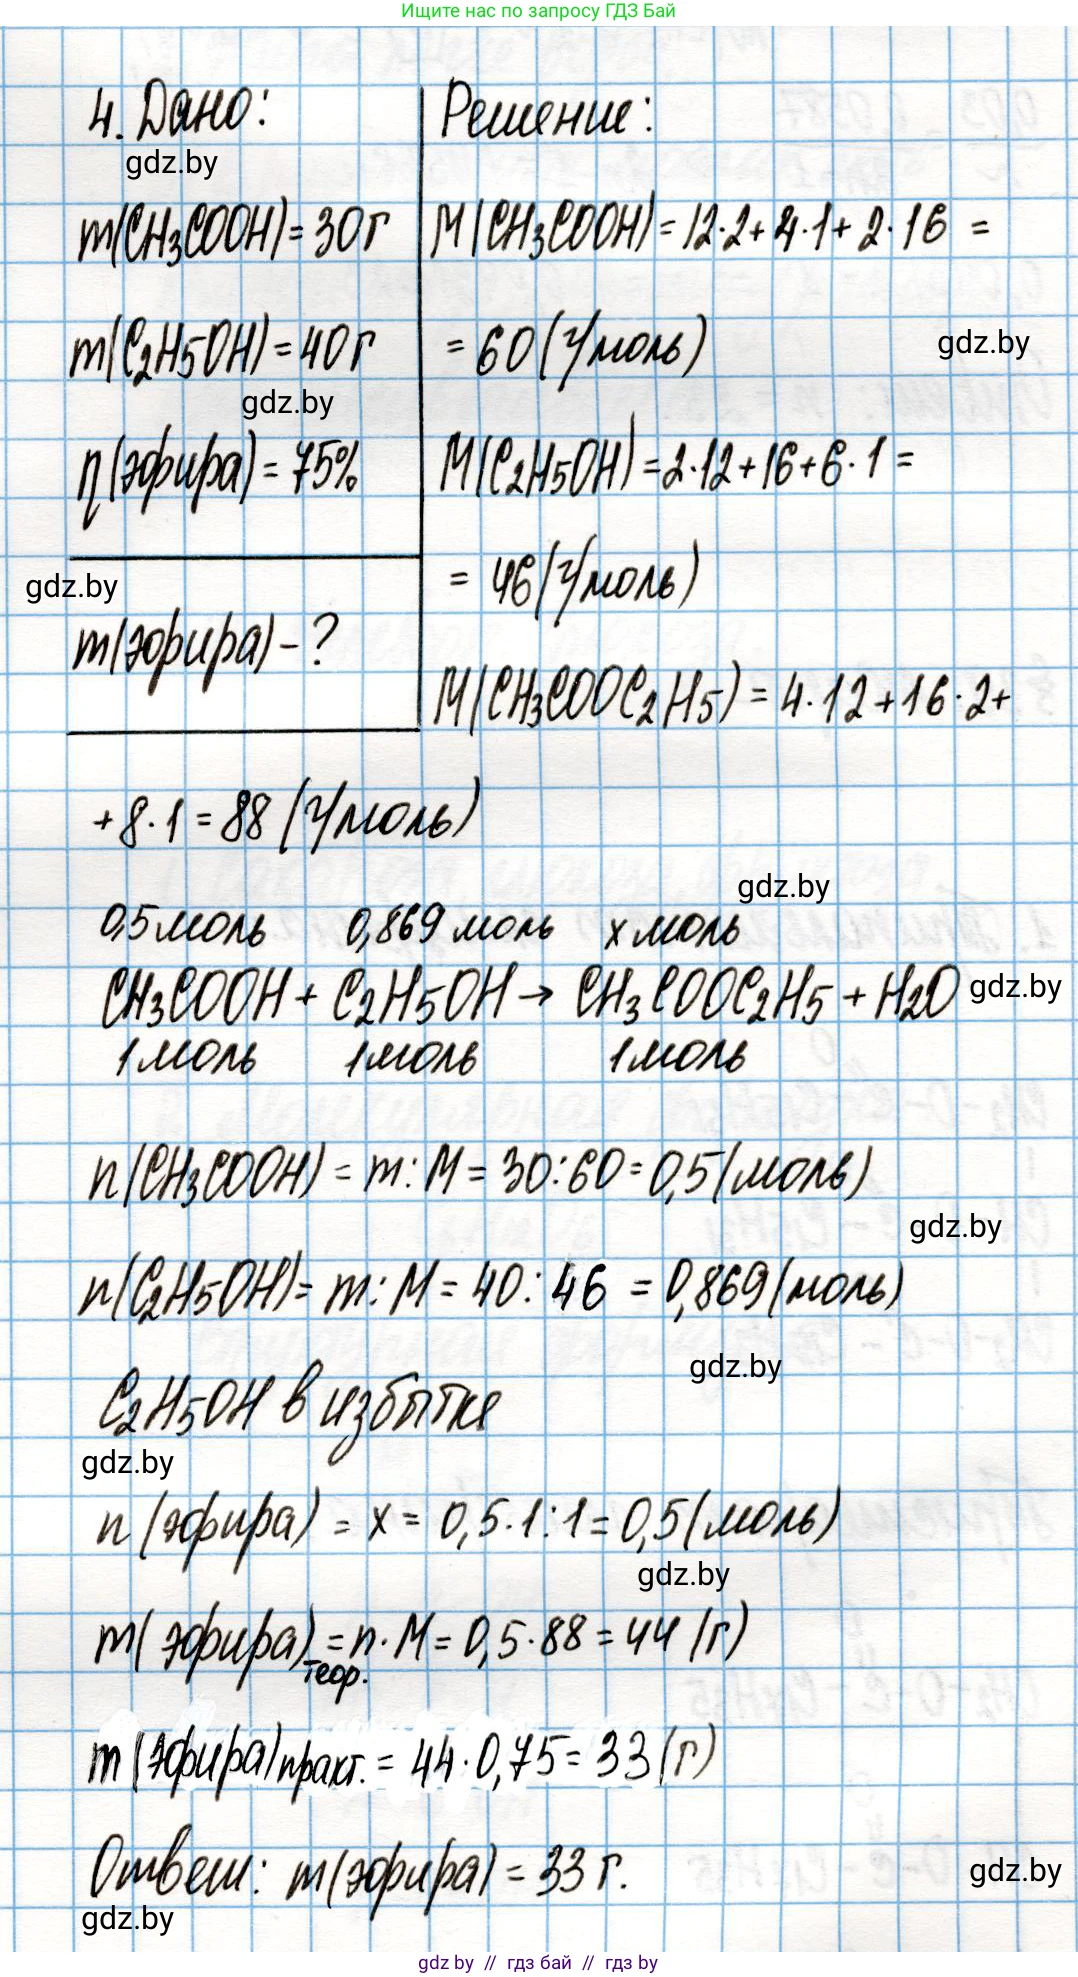 Ищите нас по запросу ГДЗ Бай
4. Дано:
gdz.by
m(CH₃COOH) = 30 г
m(C₂H₅OH) = 40 г
gdz.by
η(эфира) = 75%
gdz.by
m(эфира) - ?
Решение:
M(CH₃COOH) = 12·2 + 4·1 + 2·16 =
= 60 (г/моль)
gdz.by
M(C₂H₅OH) = 2·12 + 16 + 6·1 =
= 46 (г/моль)
M(CH₃COOC₂H₅) = 4·12 + 16·2 +
+ 8·1 = 88 (г/моль)
gdz.by
0,5 моль 0,869 моль x моль
CH₃COOH + C₂H₅OH → CH₃COOC₂H₅ + H₂O
gdz.by
1 моль 1 моль 1 моль
n(CH₃COOH) = m : M = 30 : 60 = 0,5 (моль)
gdz.by
n(C₂H₅OH) = m : M = 40 : 46 = 0,869 (моль)
gdz.by
C₂H₅OH в избытке
gdz.by
n(эфира) = x = 0,5·1 : 1 = 0,5 (моль)
gdz.by
m(эфира)теор. = n·M = 0,5·88 = 44 (г)
m(эфира)практ. = 44·0,75 = 33 (г)
Ответ: m(эфира) = 33 г.
gdz.by
gdz.by
gdz by // гдз бай // гдз by